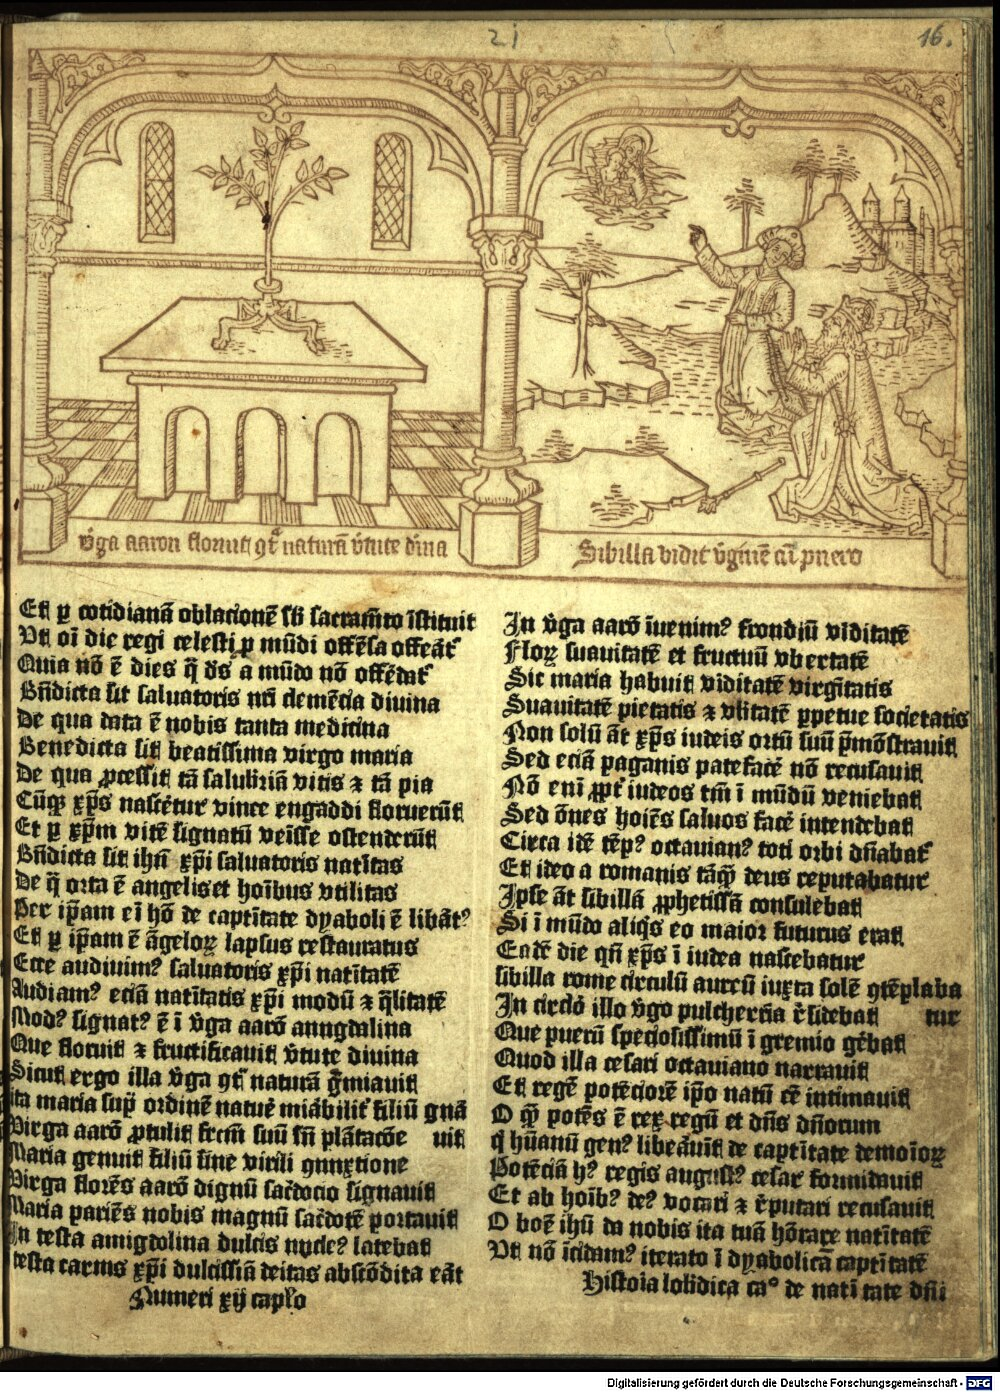 21
16.
v̄ga aaron floruit ꝯt̄ naturā v̄tute diīna
Sibilla vidit v̄ginē cū puero
Et ꝑ cotidianā oblacionē sibi sacramēto īstituit
Vt oī die regi celesti ꝓ mūdi offēsa offeāt᷑
Quia nō ē dies q̄ ds̄ a mūdo nō offēdat᷑
Bn̄dicta sit saluatoris nr̄i clemēcia diuina
De qua data ē nobis tanta medicina
Benedicta sit beatissima virgo maria
De qua ꝓcessit tā salubriā vitis ⁊ tā pia
Cūqꝫ xp̄s nascēetur vince engaddi floruerūt
Et ꝑ xp̄m vitē signatū veīsse ostenderūt
Bn̄dicta sit ihū xp̄i saluatoris natītas
De q̄ orta ē angelis et hoībus vtilitas
Per ip̄am eī hō de captītate dyaboli ē libāt᷒
Et ꝑ ip̄am ē āgeloꝝ lapsus restauratus
Ecce audiuim᷒ saluatoris xp̄i natītatē
Audiam᷒ eciā natītatis xp̄i modū ⁊ q̄litatē
Mod᷒ signat᷒ ē ī v̄ga aarō amigdalina
Que floruit ⁊ fructificauit v̄tute diuina
Sicut ergo illa v̄ga ꝯt̄ naturā ḡmiauit
ita maria sup̄ ordinē nature miābilit᷑ filiū gnā
Virga aarō ꝓtulit fr̄cm̄ suū sn̄ plātacōe uit
Maria genuit filiū sine virili ꝯiunxtione
Virga florēs aarō dignū sac̄docio signauit
Maria pariēs nobis magnū sac̄dotē portauit
In testa amigdolina dulcis nucle᷒ latebat
testa carnis xp̄i dulcissīa deitas abscōdita eāt
Numeri xij caplo
In v̄ga aarō īuenim᷒ frondiū viditatē
Floꝝ suauitatē et fructuū vbertatē
Sic maria habuit viditatē virgītatis
Suauitatē pietatis ⁊ vlitatē ꝑpetue societatis
Non solū āt xp̄s iudeis ortū suū p̄mōstrauit
Sed eciā paganis patefac̄e nō recusauit
Nō enī ꝓpt᷑ iudeos tm̄ ī mūdū veniebat
Sed ōnes hoīes saluos fac̄e intendebat
Circa idē tēp᷒ octauian᷒ toti orbi dn̄abat᷑
Et ideo a romanis tāqꝫ deus reputabatur
Ipse āt sibillā ꝓphetissā consulebat
Si ī mūdo aliqs eo maior futurus erat
Eadē die qn̄ xp̄s ī iudea nascebatur
sibilla rome circulū aureū iuxta solē ꝯtēplaba
In circlo illo v̄go pulcherrīa r̄sidebat tur
Que puerū speciosissimū ī gremio gēbat
Quod illa cesari octauiano narrauit
Et regē potēciorē ip̄o natū ēē intimauit
O qꝫ potēs ē rex regū et dn̄s dn̄orum
q̄ hūanū gen᷒ libeāuīt de captītate demoīoꝝ
Potēciā h᷒ regis august᷒ cesar formidauit
Et ab hoīb᷒ de᷒ vocari ⁊ r̄putari recusauit
O boē ihū da nobis ita tuā hōrare natītatē
Vt nō īcidam᷒ iterato ī dyabolicā captītatē
Histoia lolidica ca° de nati tate dn̄i
Digitalisierung gefördert durch die Deutsche Forschungsgemeinschaft - DFG